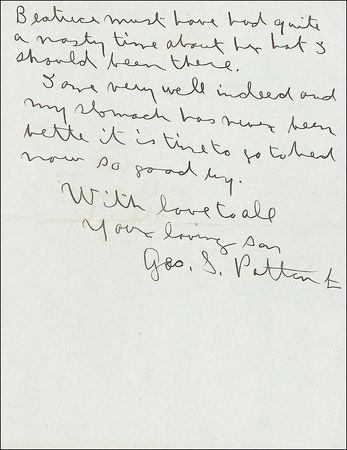 Beatrice must have had quite
a nasty time about her hat I
should been there.
I am very well indeed and
my stomach has never been
bette it is time to go to bed
now so good by.
With love to all
Your loving son
Geo. S. Patton Jr